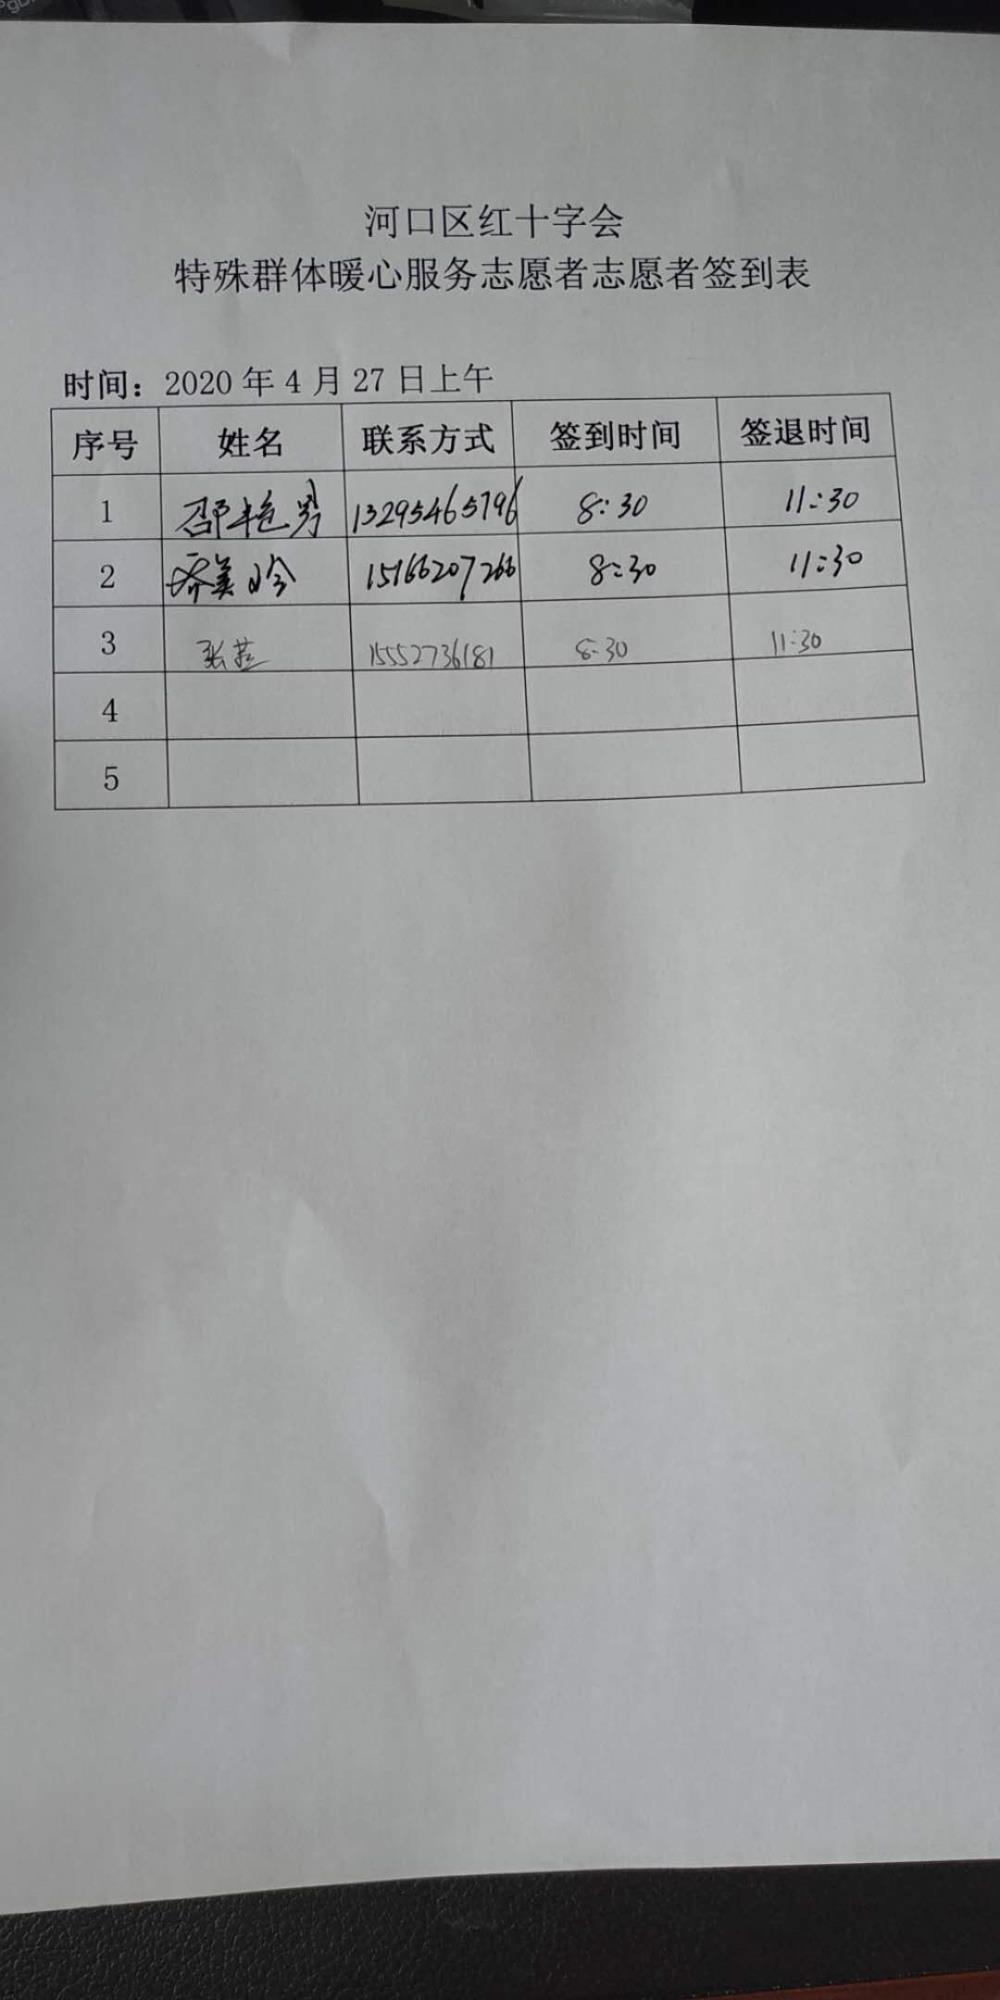 河口区红十字会
特殊群体暖心服务志愿者志愿者签到表
时间：2020 年 4 月 27 日上午
序号 姓名 联系方式 签到时间 签退时间
1 邵艳男 13295465796 8:30 11:30
2 乔美玲 15166207266 8:30 11:30
3 张 15552736181 8:30 11:30
4
5